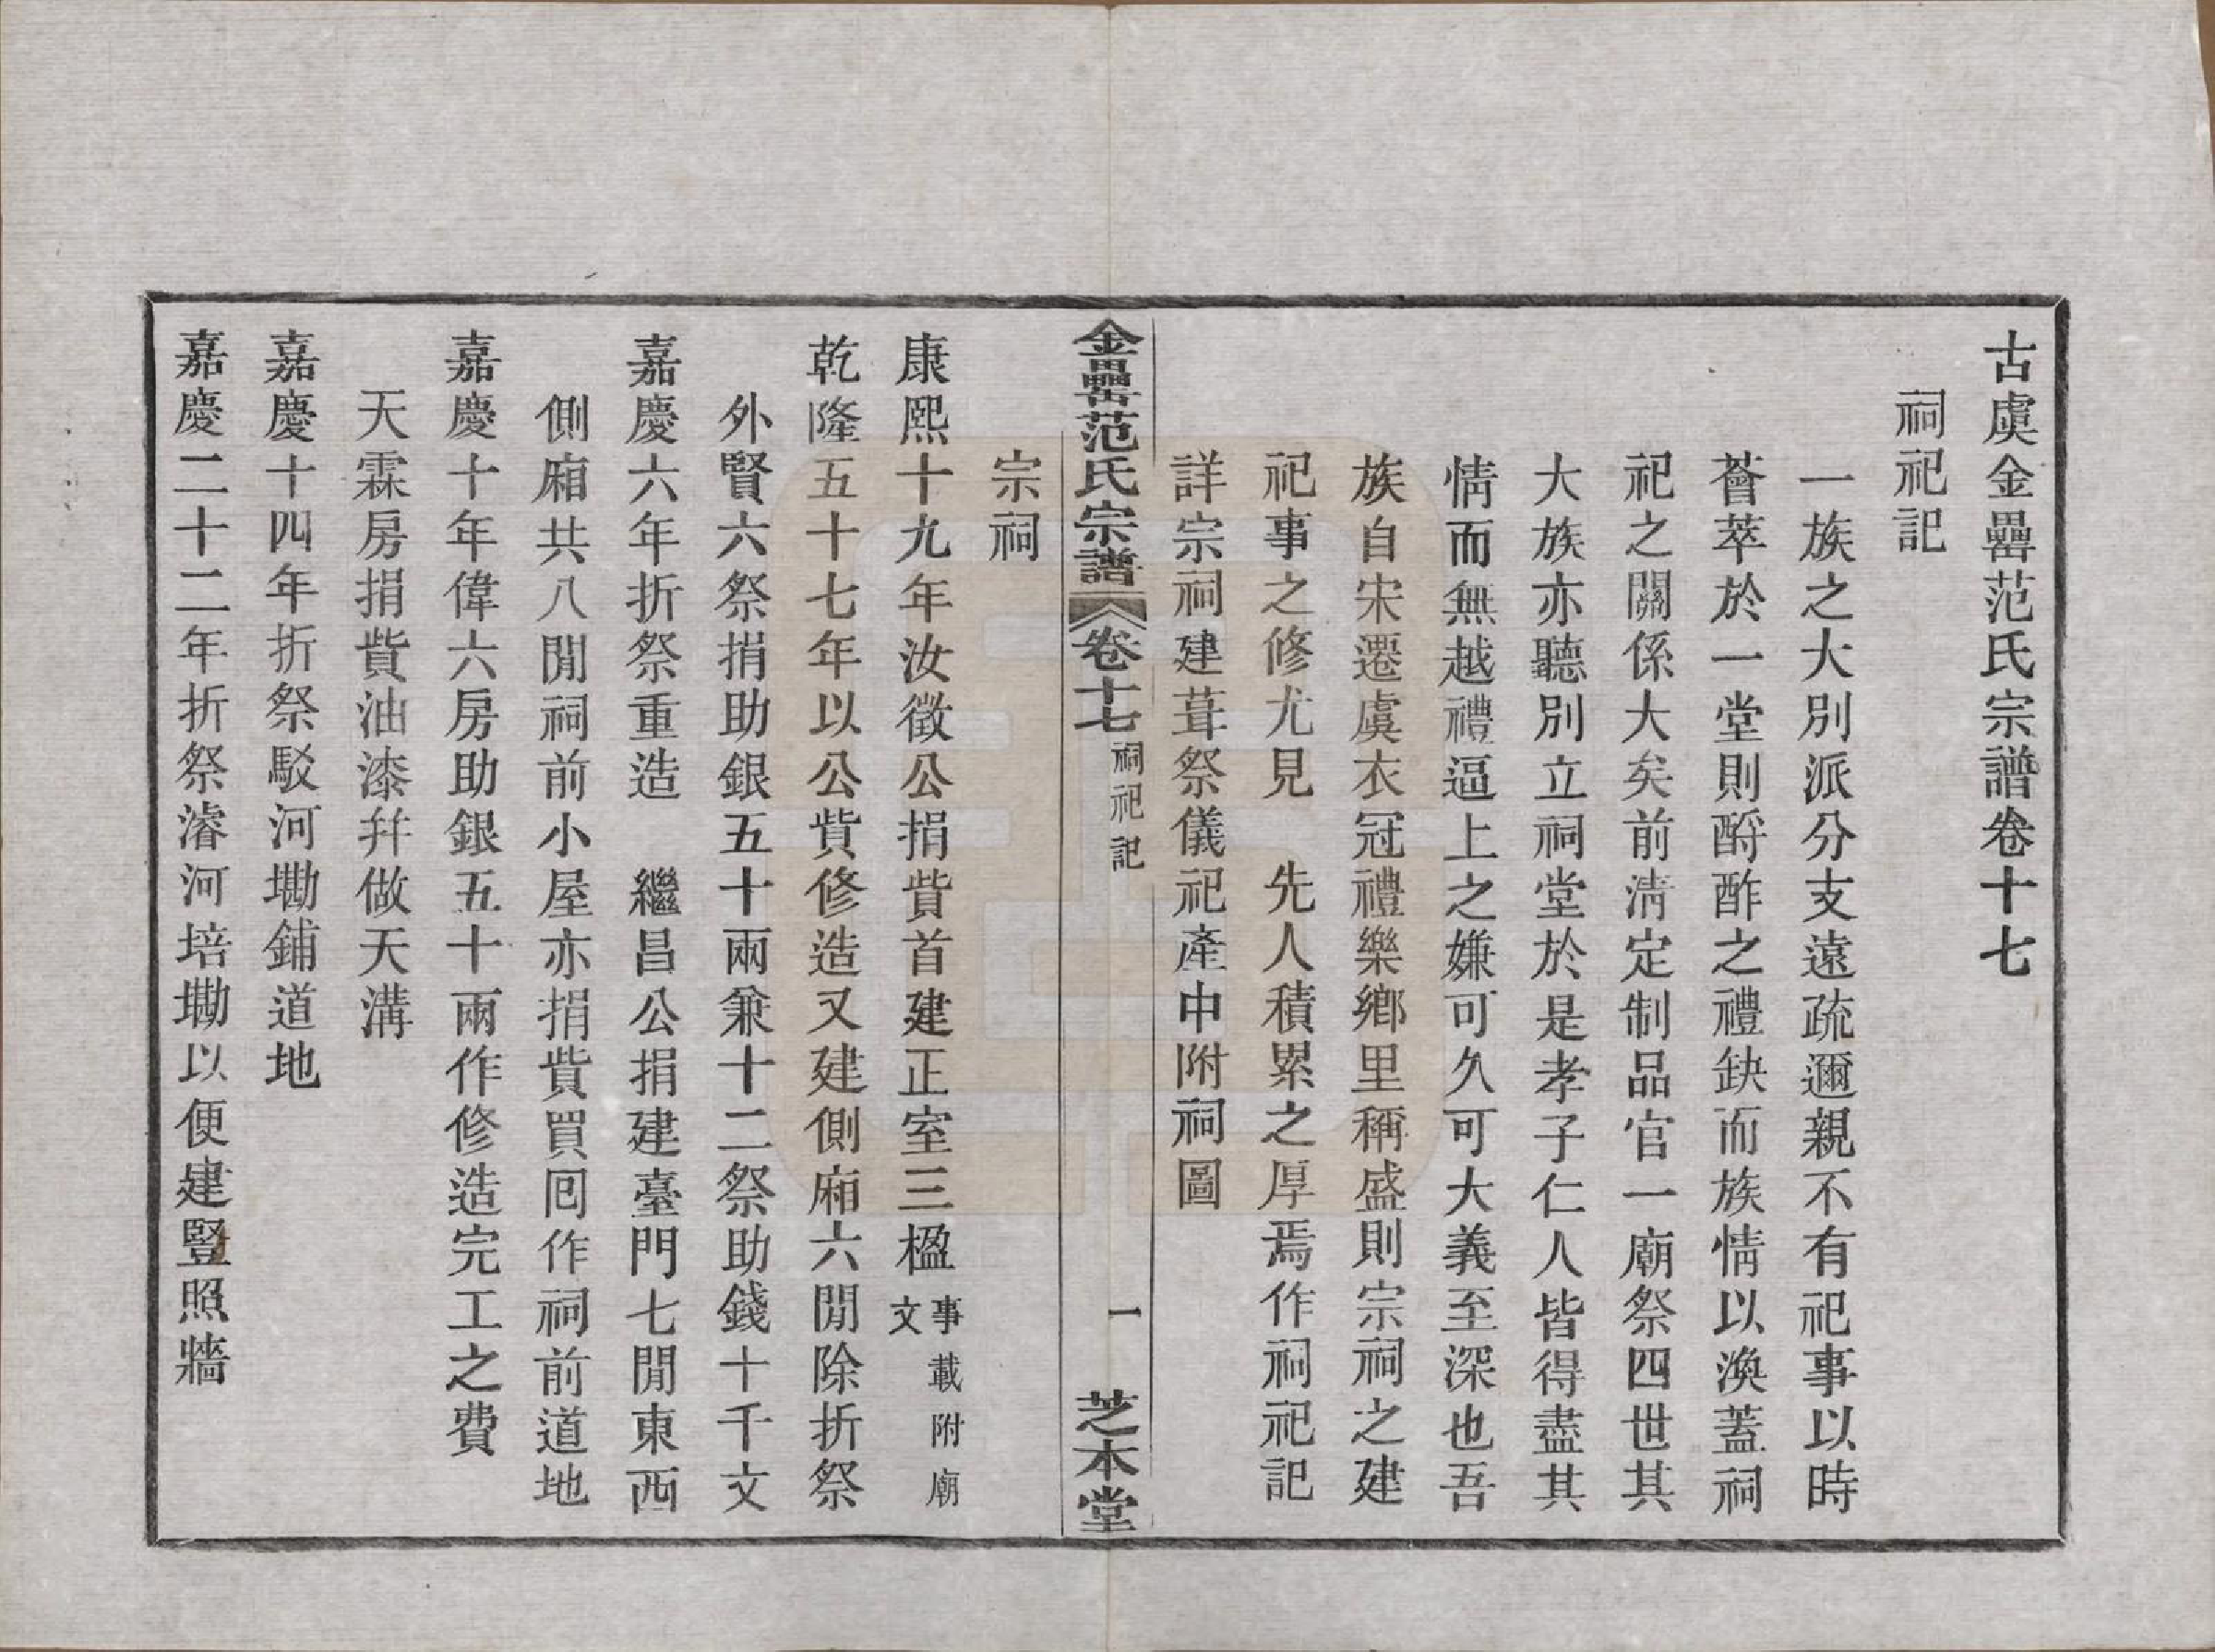 古虞金罍范氏宗譜卷十七
祠祀記
一族之大別派分支遠疏邇親不有祀事以時
薈萃於一堂則酹酢之禮缺而族情以渙蓋祠
祀之關係大矣前淸定制品官一廟祭四世其
大族亦聽別立祠堂於是孝子仁人皆得盡其
情而無越禮逼上之嫌可久可大義至深也吾
族自宋遷虞衣冠禮樂鄉里稱盛則宗祠之建
祀事之修尤見　先人積累之厚焉作祠祀記
詳宗祠建葺祭儀祀產中附祠圖
金罍范氏宗譜　卷十七　祠祀記　一　芝本堂
宗祠
康熙十九年汝徵公捐貲首建正室三楹事載附廟文
乾隆五十七年以公貲修造又建側廂六閒除折祭
外賢六祭捐助銀五十兩兼十二祭助錢十千文
嘉慶六年折祭重造　繼昌公捐建臺門七閒東西
側廂共八閒祠前小屋亦捐貲買囘作祠前道地
嘉慶十年偉六房助銀五十兩作修造完工之費
天霖房捐貲油漆幷做天溝
嘉慶十四年折祭駁河墈鋪道地
嘉慶二十二年折祭濬河培墈以便建豎照牆